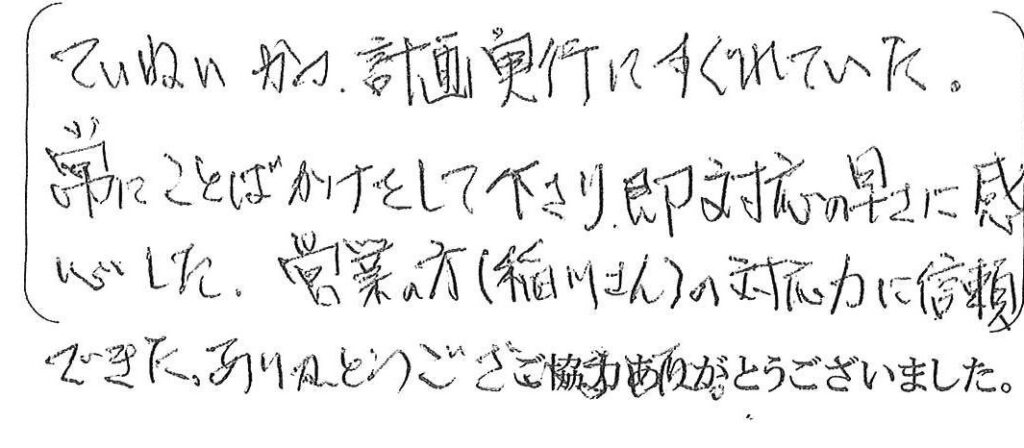 ていねいかつ、計画実行にすぐれていた。
常にことばかけをして下さり、即対応の早さに感
心した。営業の方(稲川さん)の対応力に信頼
できた。ありがとうござ
ご協力ありがとうございました。